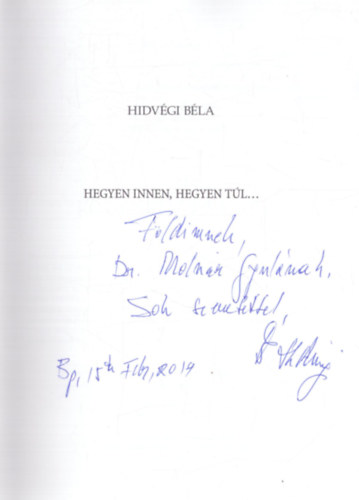 HIDVÉGI BÉLA
HEGYEN INNEN, HEGYEN TÚL…
Földimnek,
Dr. Molnár Gyulának,
Sok szeretettel,
Bp, 15th Feb, 2014.